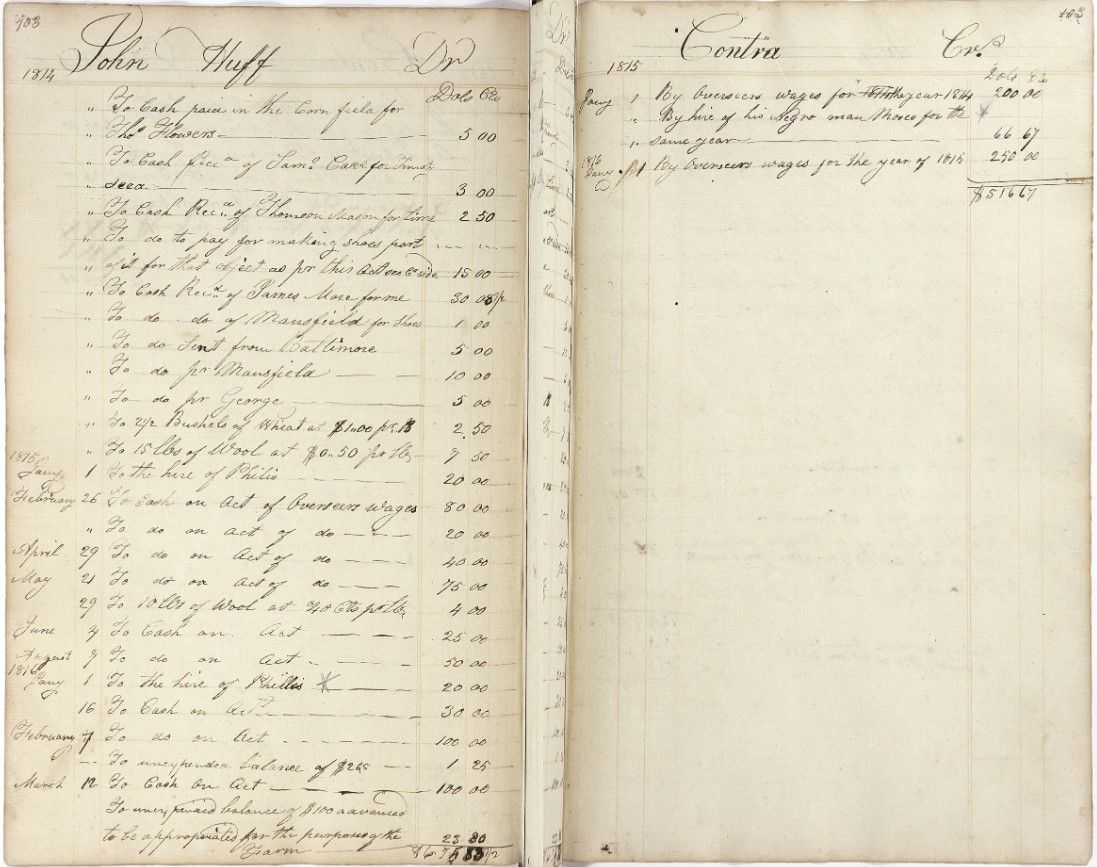 103
John Huff Dr
1814
Dols Cts
" To Cash paid in the Corn field for
" Thos Flowers 5 00
" To Cash Recd of Saml Carr for Timoy
" seed 3 00
" To Cash Recd of Thomson Mason for lime 2 50
" To do to pay for making shoes part
" of it for that object as pr this Act see Cr side 15 00
" To Cash Recd of James More for me 30 05 1/2
" To do do of Mansfield for Shoes 1 00
" To do Sent from Baltimore 5 00
" To do pr Mansfield 10 00
" To do pr George 5 00
" To 2 1/2 Bushels of Wheat at $1.00 pr B 2 50
" To 15 lbs of Wool at $0.50 pr lb 7 50
1815
Jany 1 To the hire of Philis 20 00
February 26 To Cash on Act of Overseers Wages 80 00
" To do on Act of do 20 00
April 29 To do on Act of do 40 00
May 21 To do on Act of do 75 00
29 To 10 lbs of Wool at 40 Cts pr lb 4 00
June 4 To Cash on Act 25 00
August 9 To do on Act 50 00
1816
Jany 1 To the hire of Phillis 20 00
16 To Cash on Act 30 00
February 7 To do on Act 100 00
To unexpended balance of 1 25
March 12 To Cash on Act 100 00
To unexpended balance of $100 advanced
to be appropriated for the purposes of the 23 80
Farm
103
Contra Cr.
1815
Dols Cts
Jany 1 By Overseers wages for the year 1814 200 00
" By hire of his Negro man Moses for the
" same year 66 67
1816
Jany 1 By Overseers wages for the year of 1815 250 00
$516 67